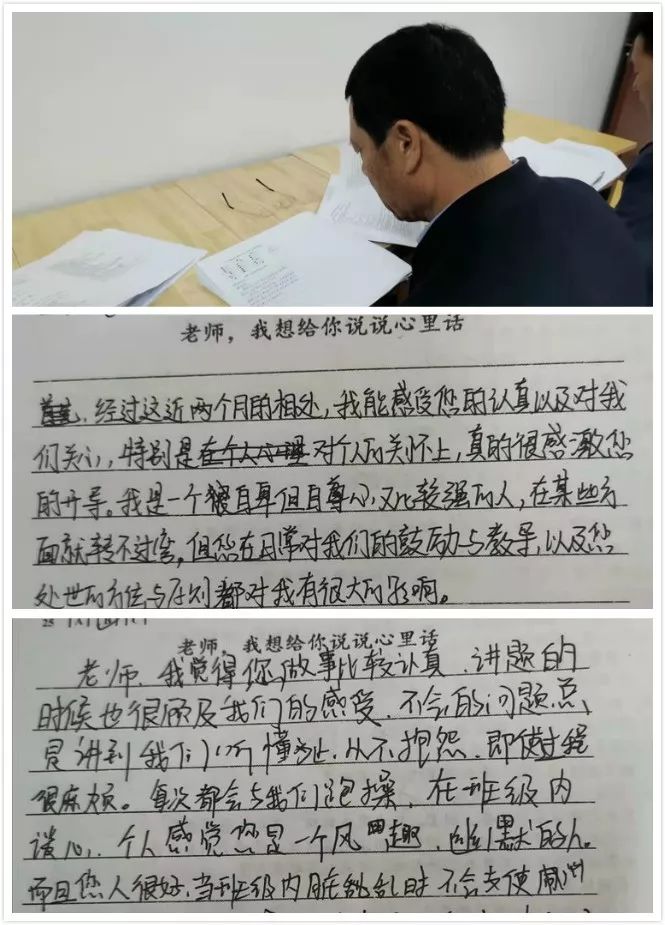 老师，我想给你说说心里话
经过这近两个月的相处，我能感受您的认真以及对我
们关心，特别是在个人心理对个人的关怀上，真的很感激您
的开导。我是一个很自卑但自尊心又比较强的人，在某些方
面就转不过弯，但您在日常对我们的鼓励与教导，以及您
处世的方法与原则都对我有很大的影响。
老师，我想给你说说心里话
老师，我觉得你做事比较认真，讲题的
时候也很顾及我们的感受，不会的问题总
是讲到我们听懂为止，从不抱怨，即使过程
很麻烦。每次都会与我们跑操，在班级内
谈心，个人感觉您是一个风趣，幽默的人。
而且您人很好，当班级内脏乱时不会支使